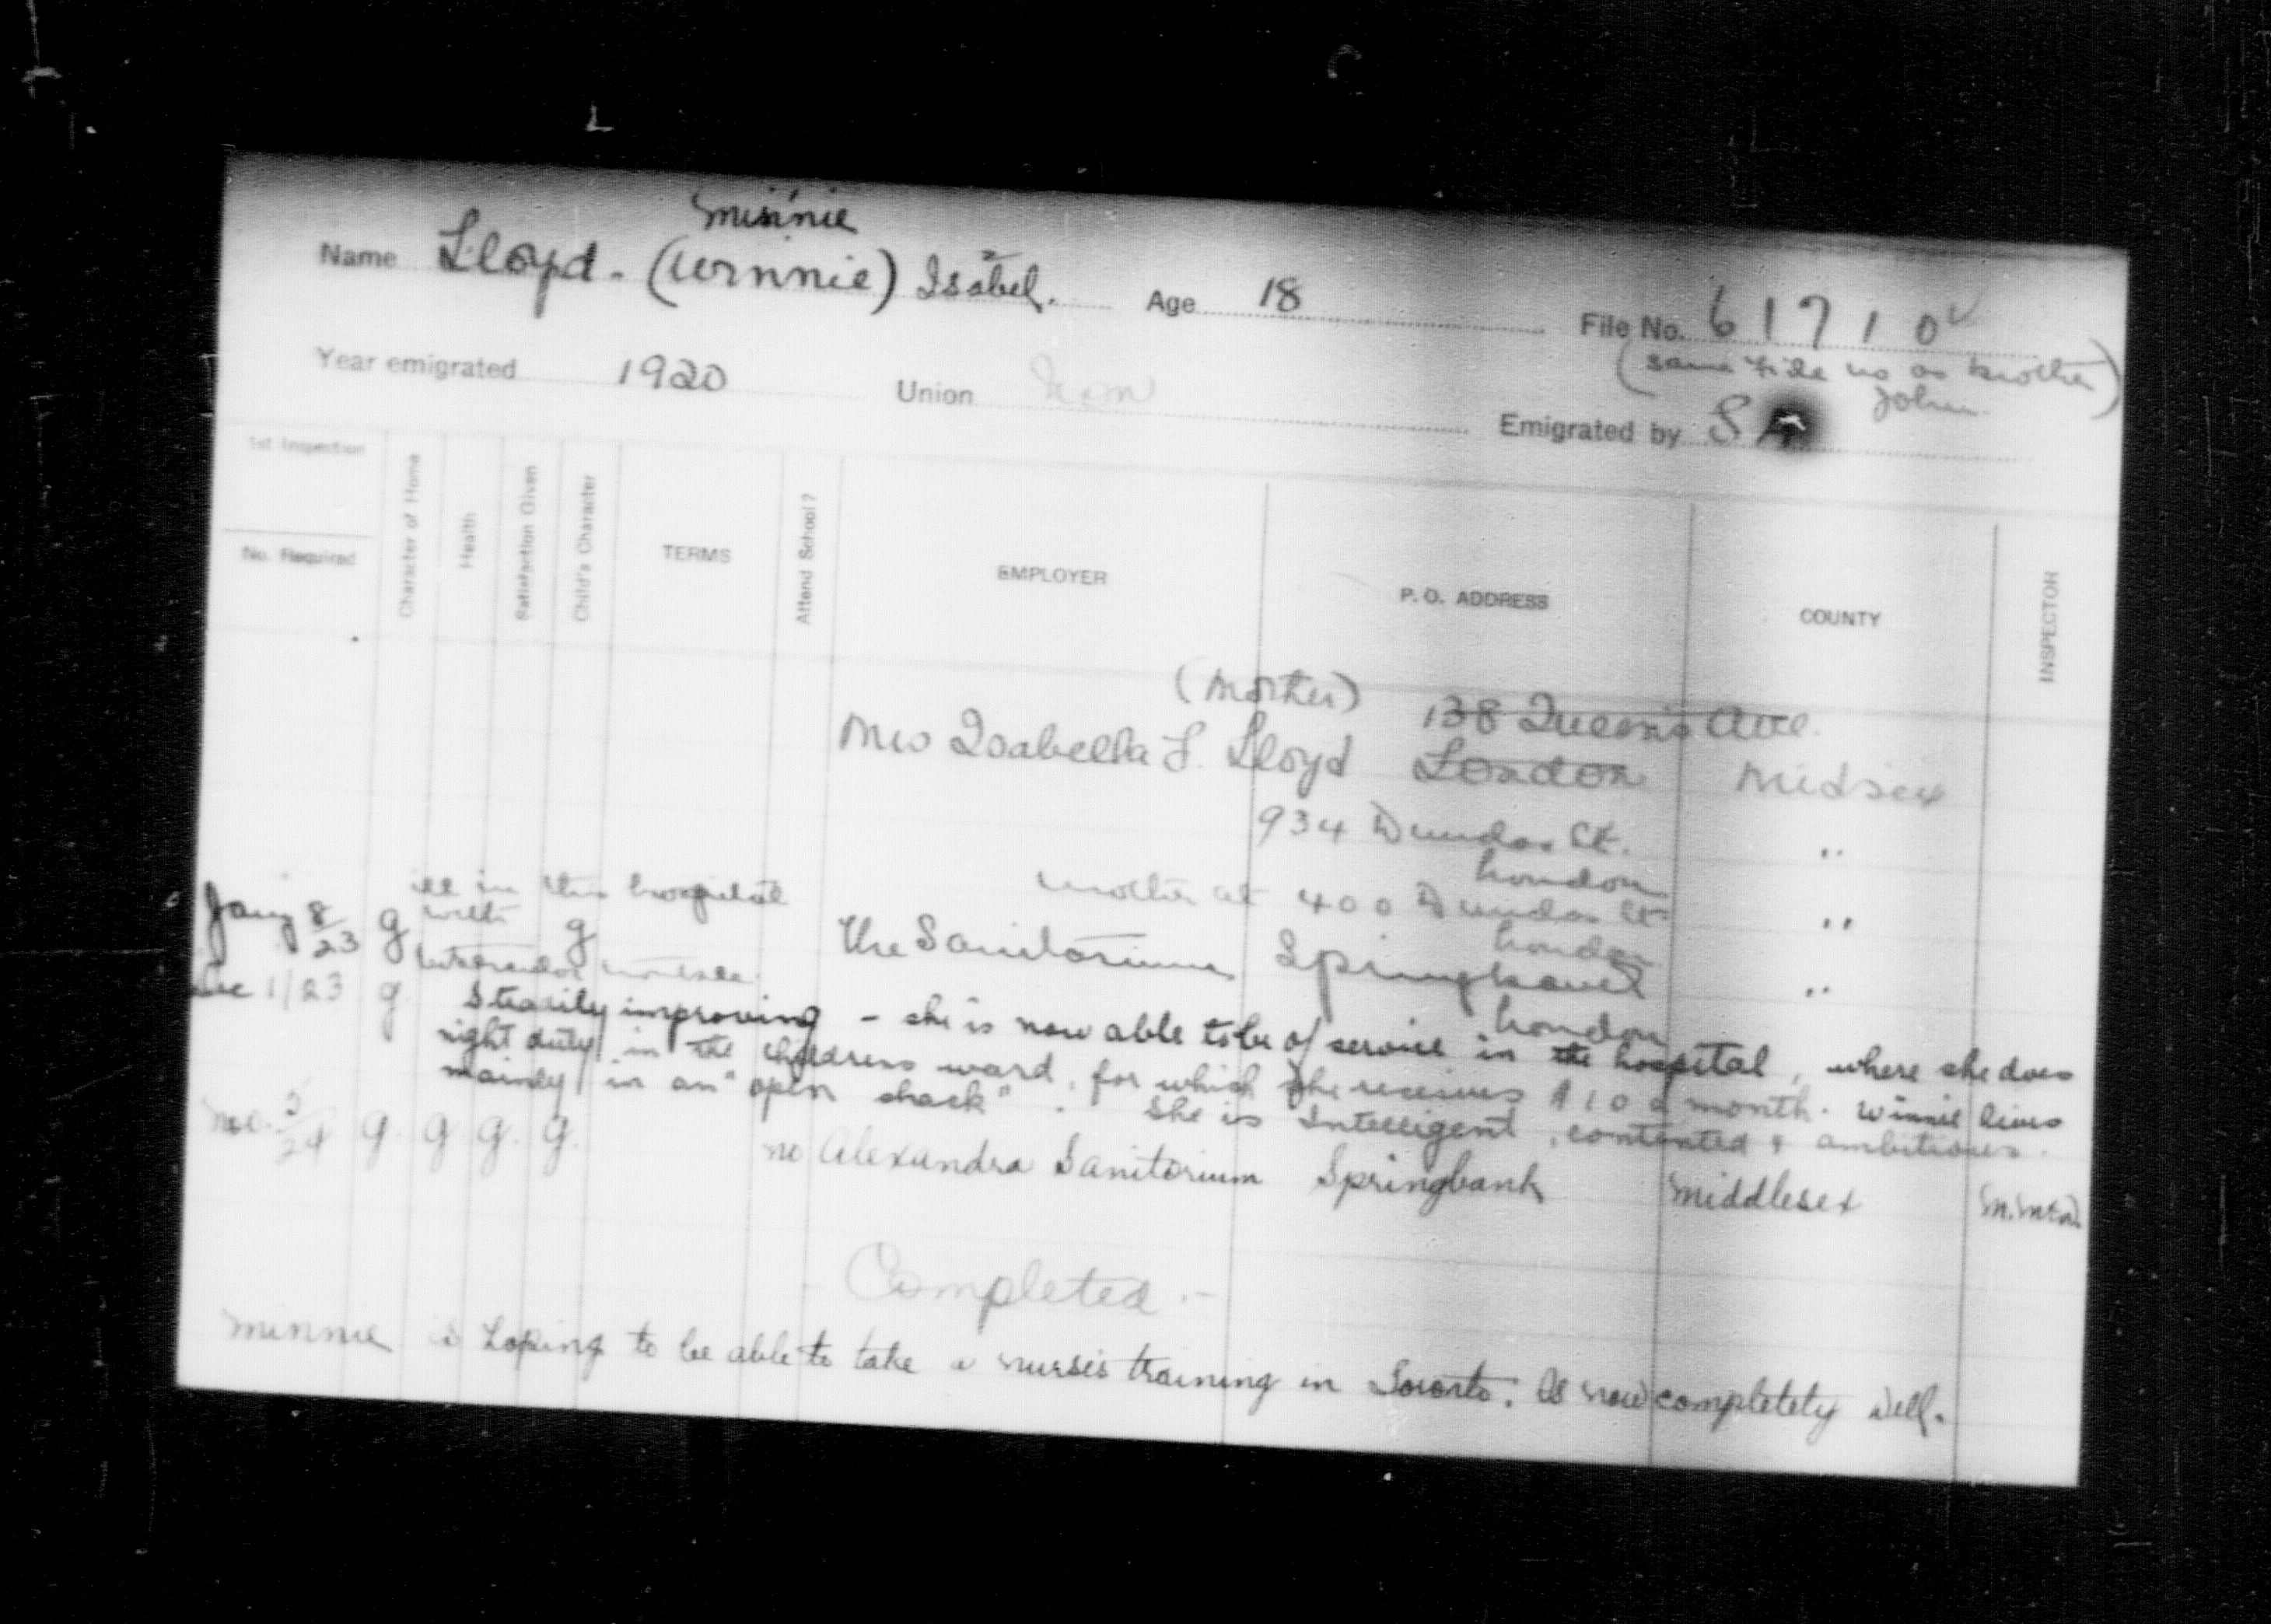 L
Minnie
Name Lloyd - (Winnie) Isabel. Age 18
File No. 61710
(same file no as brother John)
Year emigrated 1920 Union Emigrated by S A
1st Inspection
No. Required
Character of Home
Health
Satisfaction Given
Child's Character
TERMS
Attend School?
EMPLOYER
P. O. ADDRESS
COUNTY
INSPECTOR
(Mother) 138 Queens Ave.
Mrs Isabella F. Lloyd London Midsex
934 Dundas St. "
London
mother at 400 Dundas St "
London
ill in this hospital
with
Jany 8/23 g g The Sanitorium "
London
Dec 1/23 g Steadily improving - she is now able to be of service in the hospital, where she does
night duty in the childrens ward, for which she receives $10 a month. Winnie lives
mainly in an "open shack". She is Intelligent, contented & ambitious.
g. g g. g. no Alexandra Sanitorium Springbank Middlesex
Completed.-
Minnie is hoping to be able to take a nurses training in Toronto. Is now completely well.